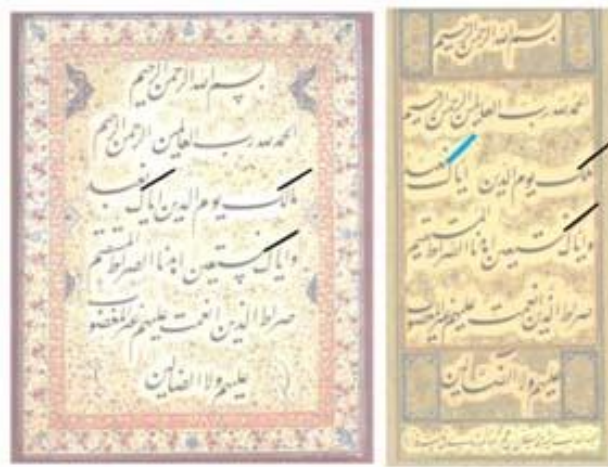 بسم الله الرحمن الرحیم
الحمد لله رب العالمین الرحمن الرحیم
مالک یوم الدین ایاک نعبد
وایاک نستعین اهدنا الصراط المستقیم
صراط الذین انعمت علیهم غیر المغضوب
علیهم ولا الضالین
بسم الله الرحمن الرحیم
الحمد لله رب العالمین الرحمن الرحیم
مالک یوم الدین ایاک نعبد
وایاک نستعین اهدنا الصراط المستقیم
صراط الذین انعمت علیهم غیر المغضوب
علیهم ولا الضالین